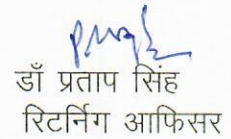 डॉ प्रताप सिंह
रिटर्निंग आफिसर